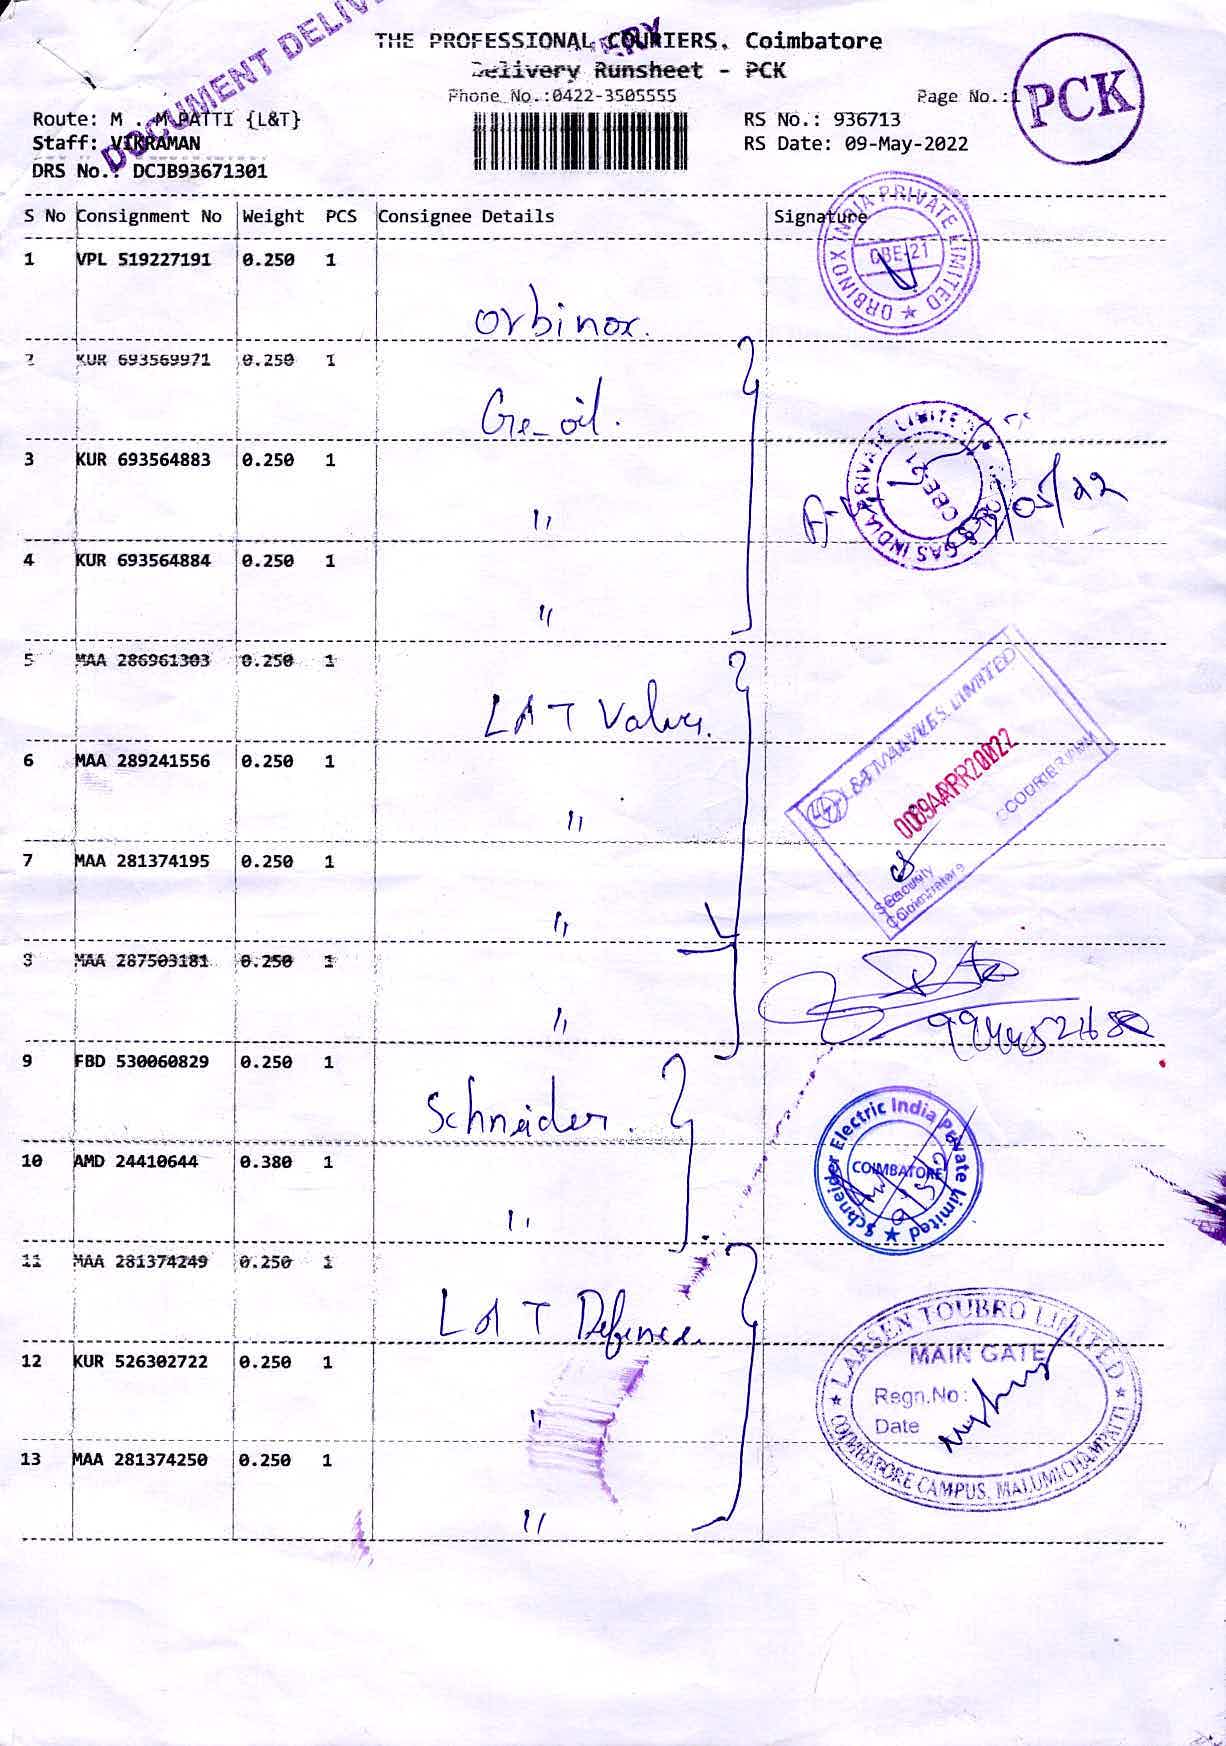 DOCUMENT DELIVERY
THE PROFESSIONAL COURIERS, Coimbatore
Delivery Runsheet - PCK
Phone No.:0422-3505555
Page No.:1
PCK
Route: M . M PATTI {L&T}
RS No.: 936713
Staff: VIKRAMAN
RS Date: 09-May-2022
DRS No.: DCJB93671301
S No Consignment No Weight PCS Consignee Details Signature
1 VPL 519227191 0.250 1
Orbinox.
ORBINOX INDIA PRIVATE LIMITED ★
CBE-21
2 KUR 693569971 0.250 1
Ge-oil.
3 KUR 693564883 0.250 1
"
GAS INDIA PRIVATE LIMITE
CBE-21
/05/22
4 KUR 693564884 0.250 1
"
5 MAA 286961303 0.250 1
L&T Valves.
6 MAA 289241556 0.250 1
"
L&T VALVES LIMITED
COURIER
Security
Coimbatore
7 MAA 281374195 0.250 1
"
8 MAA 287503181 0.250 1
"
9 FBD 530060829 0.250 1
Schneider.
10 AMD 24410644 0.380 1
"
Schneider Electric India Private Limited ★
COIMBATORE
11 MAA 281374249 0.250 1
L&T Defence.
12 KUR 526302722 0.250 1
"
★ LARSEN TOUBRO LIMITED ★
MAIN GATE
Regn.No:
Date
COIMBATORE CAMPUS, MALUMICHAMPATTI
13 MAA 281374250 0.250 1
"